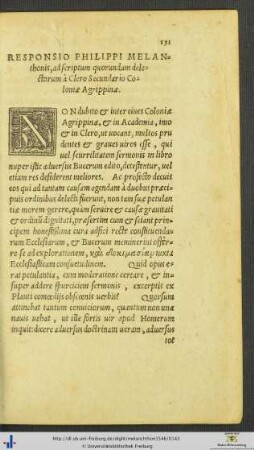 131
RESPONSIO PHILIPPI MELAN-
thonis, ad scriptum quorundam dele-
ctorum à Clero Secundario Co-
loniæ Agrippinæ.
NON dubito & inter ciues Coloniæ
Agrippinæ, & in Academia, imo
& in Clero, ut uocant, multos pru
dentes & graues uiros esse, qui
uel scurrilitatem sermonis in libro
nuper istic aduersus Bucerum edito, detestentur, uel
etiam res desiderent meliores. Ac profecto decuit
eos qui ad tantam causam agendam à duobus præci-
puis ordinibus delecti fuerunt, non tam suæ petulan
tiæ morem gerere, quàm seruire et causæ grauitati
et ordinū dignitati, præsertim cum et sciant prin-
cipem honestissima cura adfici recte constituendæ
rum Ecclesiarum, & Bucerum meminerint offer-
re se ad explorationem, iuxta
Ecclesiasticam consuetudinem. Quid opus e-
rat petulantia, cum moderatione certare, & in-
super addere spurciciem sermonis, excerptis ex
Planti comœdijs obscœnis uerbis? Quorsum
attinebat tantum conuiciorum, quantum non una
nauis uehat, ut ille fortis uir apud Homerum
inquit: dicere aduersus doctrinam ueram, aduersus
tot
http://dl.ub.uni-freiburg.de/diglit/melanchthon1546/0143
© Universitätsbibliothek Freiburg